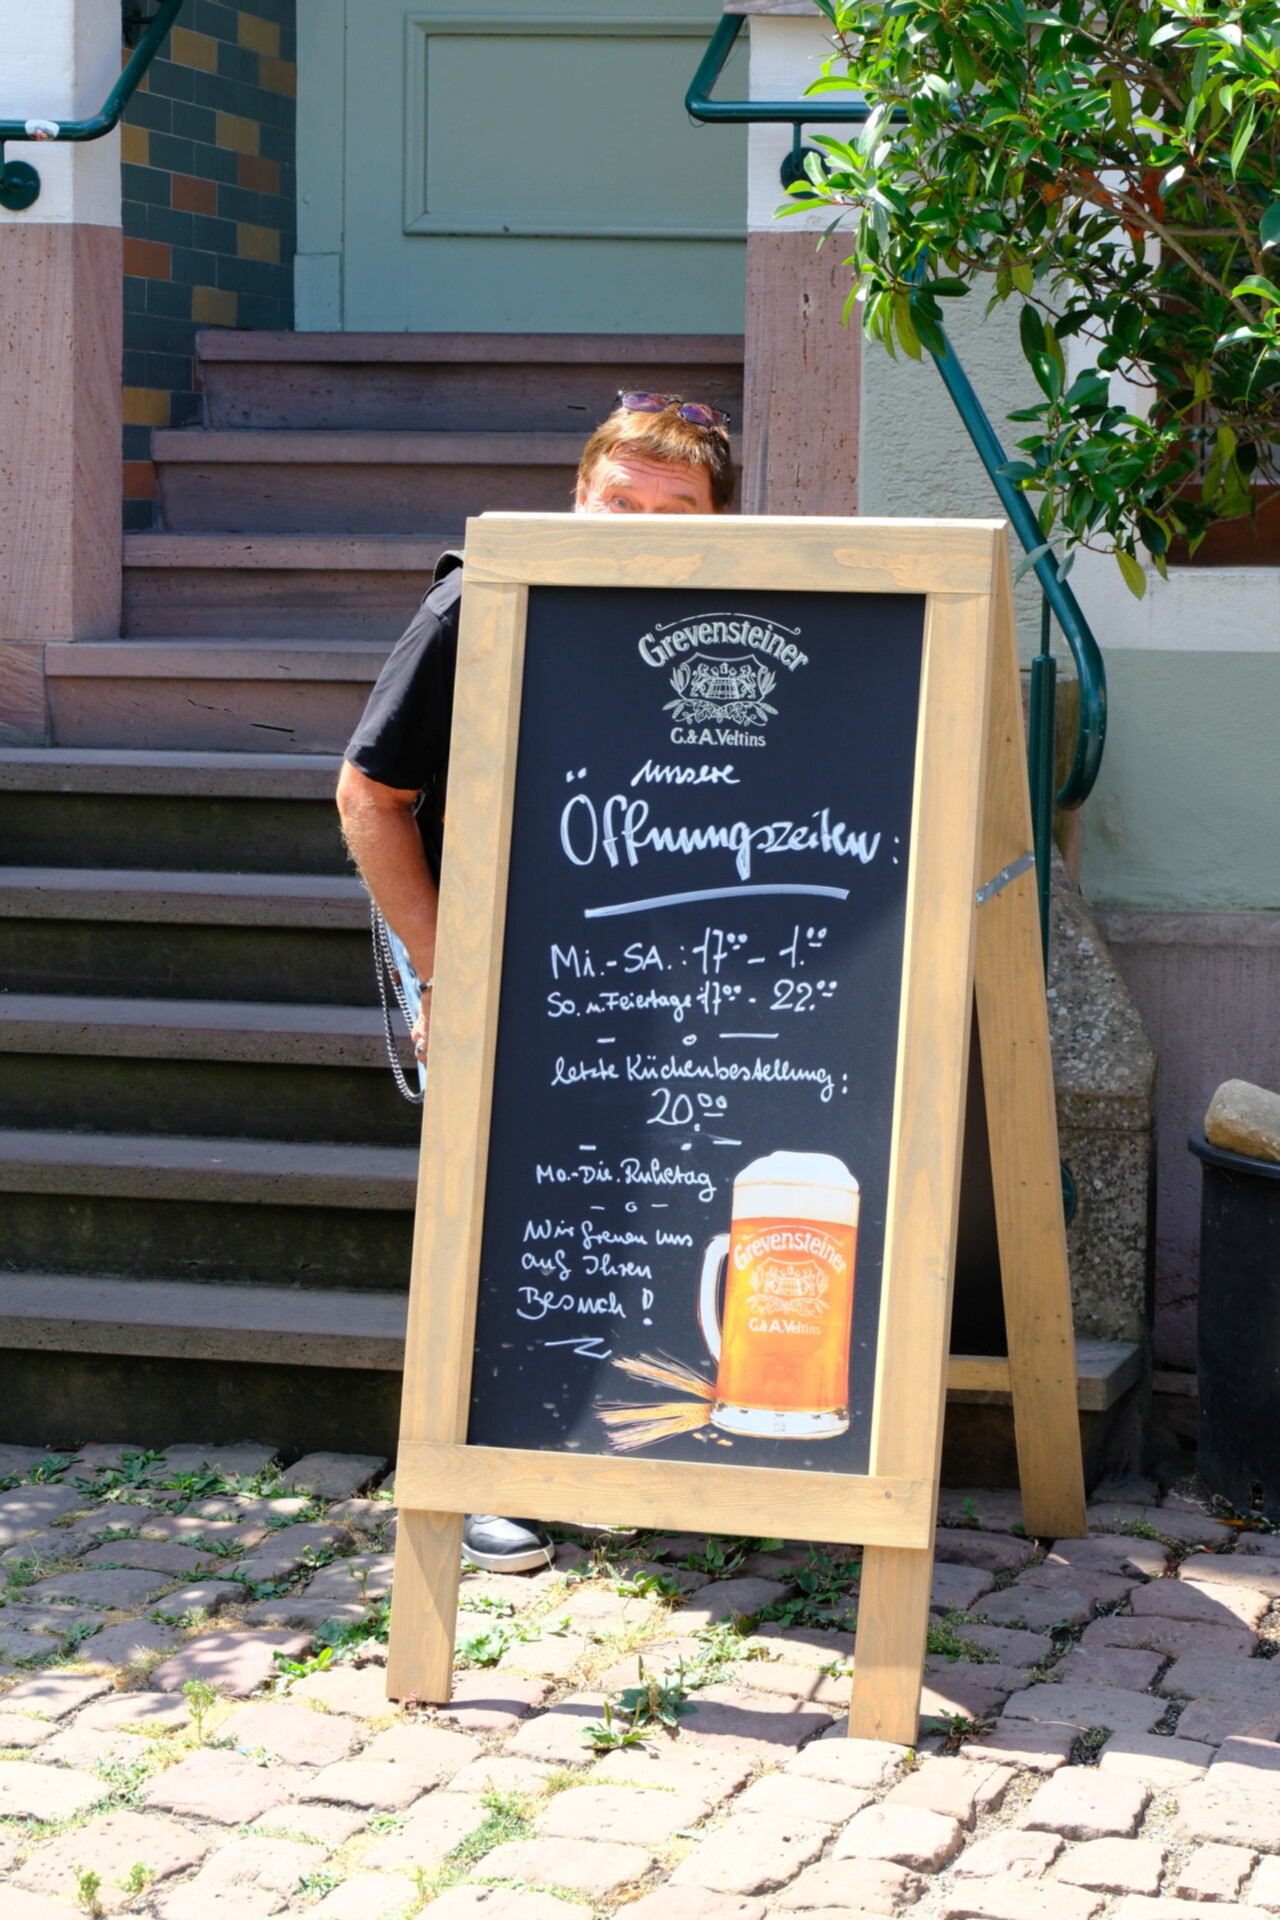 Grevensteiner
C.&A.Veltins
unsere
Öffnungszeiten:
Mi.-SA.: 17°° - 1.°°
So. u. Feiertage 17°° - 22.°°
letzte Küchenbestellung:
20.°°
Mo.-Die. Ruhetag
Wir freuen uns
auf Ihren
Besuch !
Grevensteiner
C.&A.Veltins